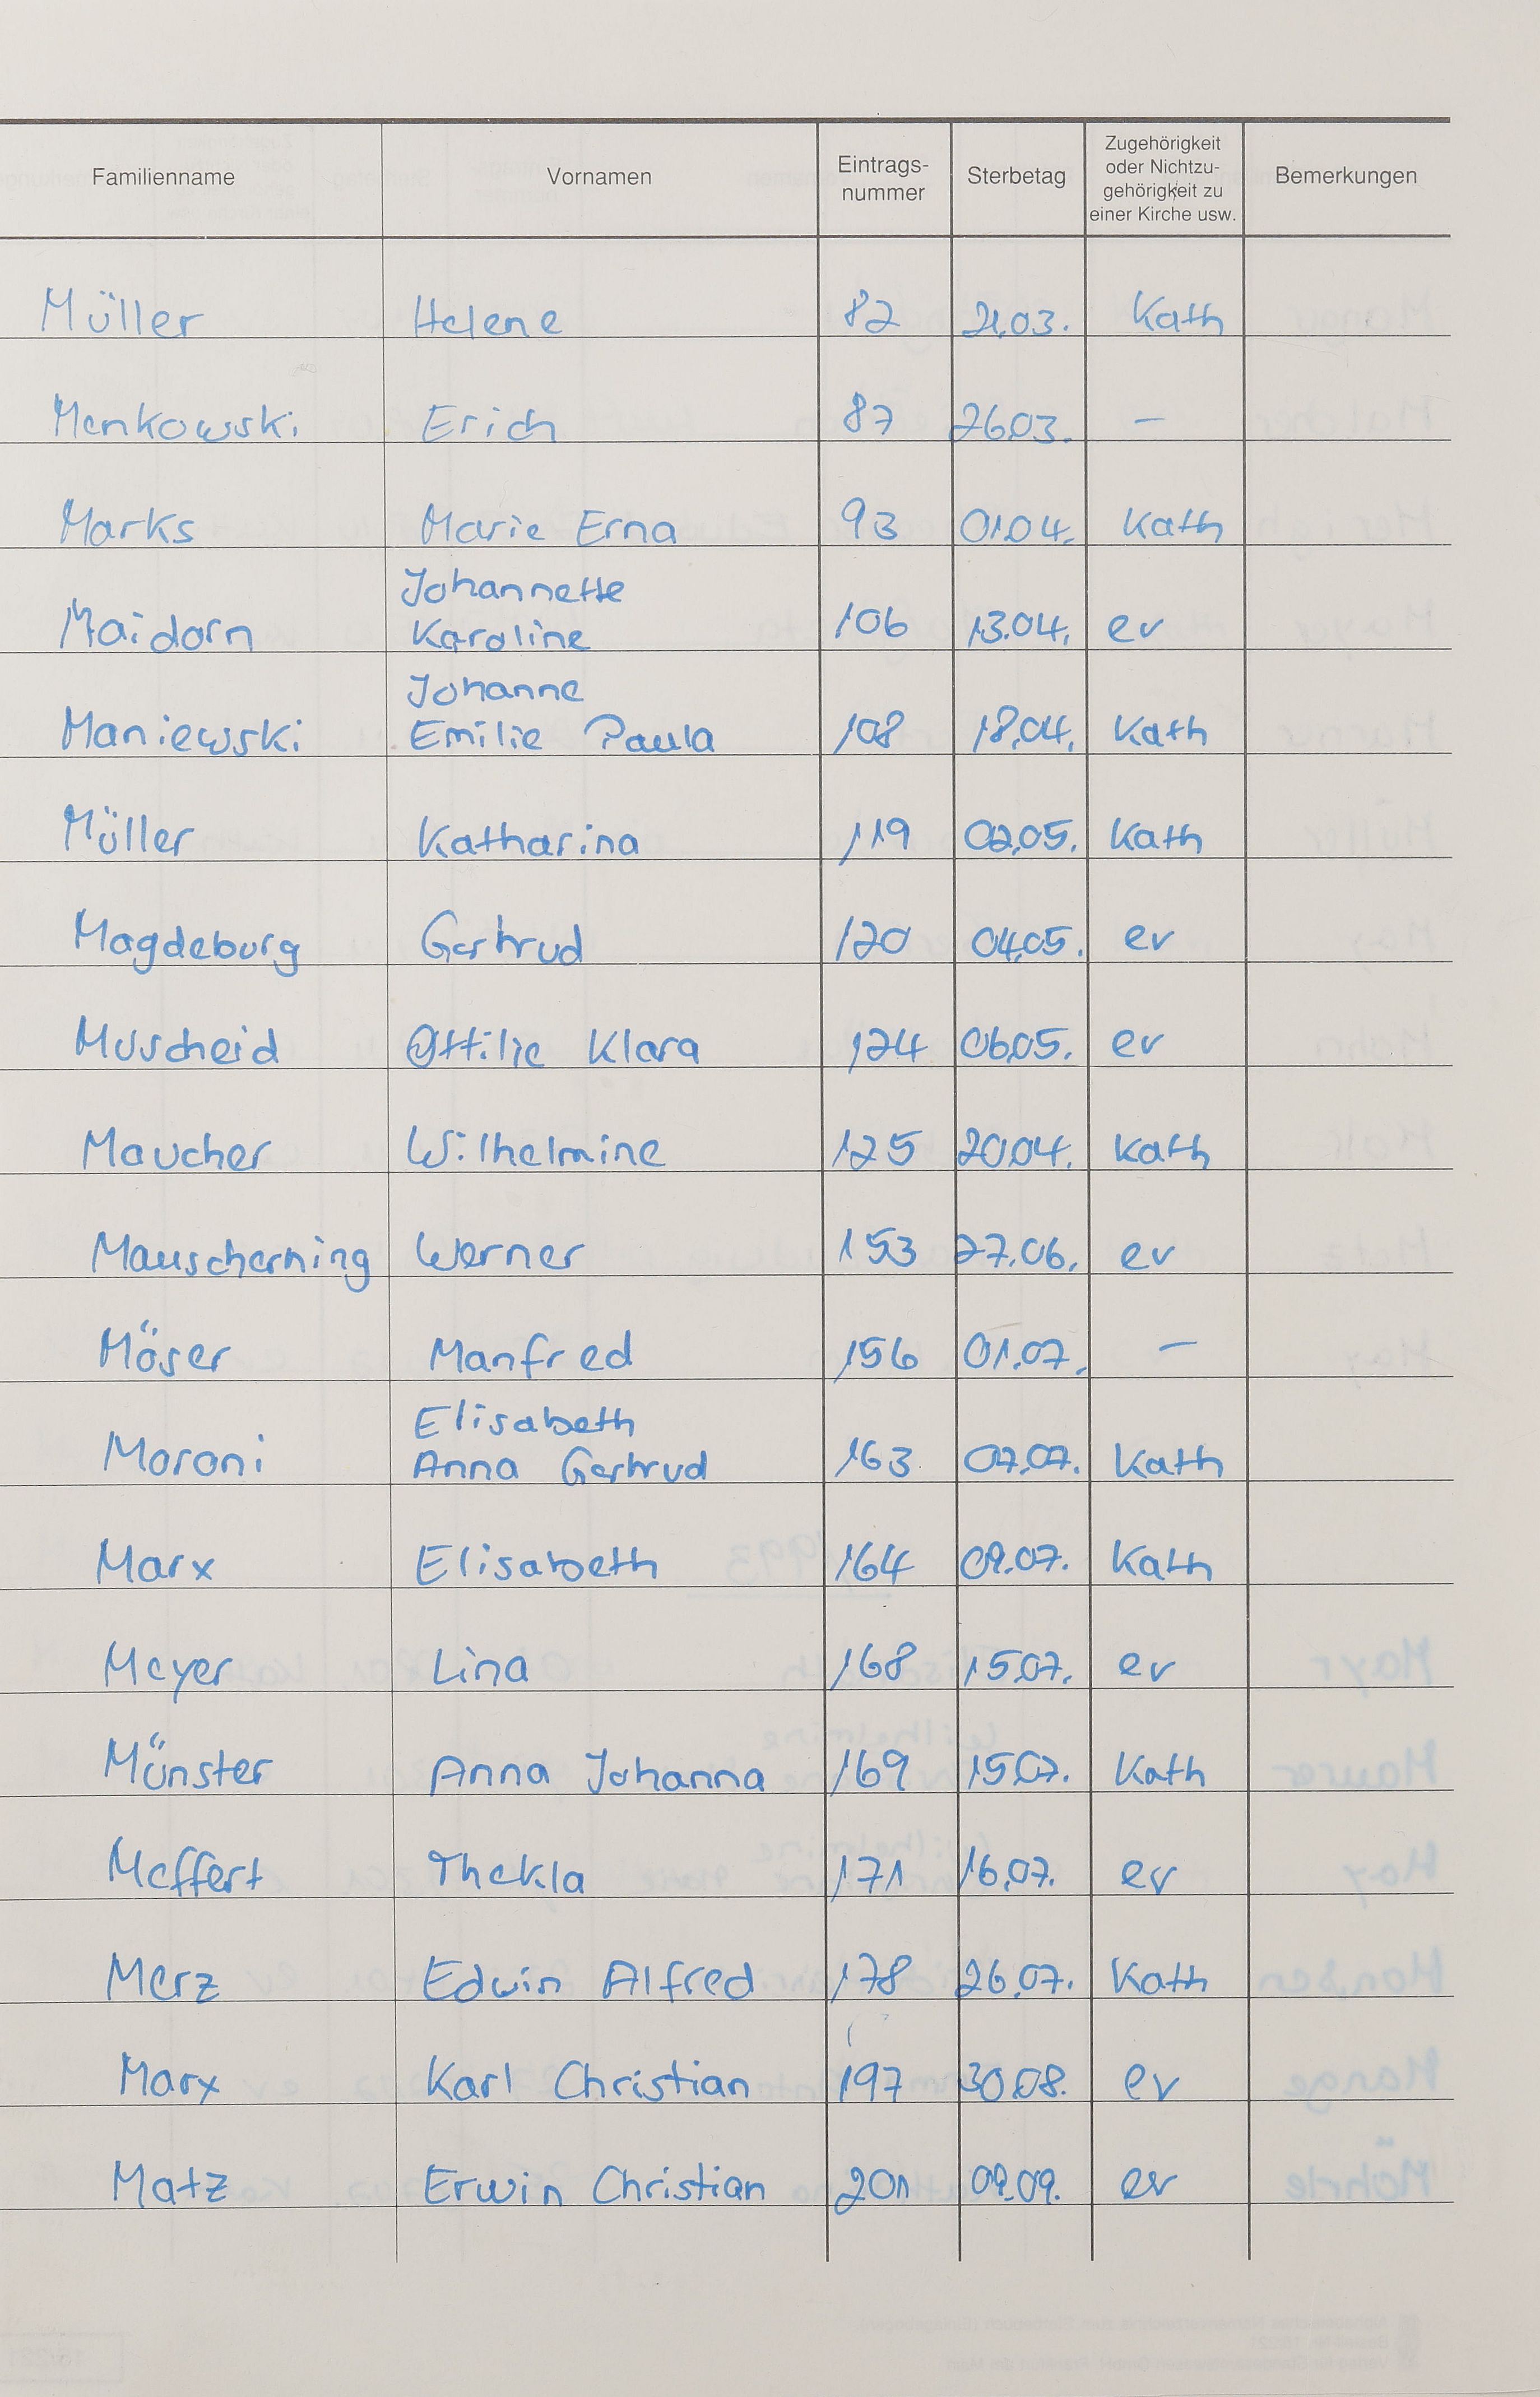 Familienname Vornamen Eintrags-nummer Sterbetag Zugehörigkeit oder Nichtzu-gehörigkeit zu einer Kirche usw. Bemerkungen
Müller Helene 82 21.03. Kath
Menkowski Erich 87 26.03. —
Marks Marie Erna 93 01.04. Kath
Johannette
Maidorn Karoline 106 13.04. ev
Johanne
Maniewski Emilie Paula 108 18.04. Kath
Müller Katharina 119 02.05. Kath
Magdeburg Gertrud 120 04.05. ev
Muscheid Ottilie Klara 124 06.05. ev
Maucher Wilhelmine 125 20.04. Kath
Mauscherning Werner 153 27.06. ev
Möser Manfred 156 01.07. —
Elisabeth
Moroni Anna Gertrud 163 07.07. Kath
Marx Elisabeth 164 09.07. Kath
Meyer Lina 168 15.07. ev
Münster Anna Johanna 169 15.07. Kath
Meffert Thekla 171 16.07. ev
Merz Edwin Alfred 178 26.07. Kath
Marx Karl Christian 197 30.08. ev
Matz Erwin Christian 201 09.09. ev